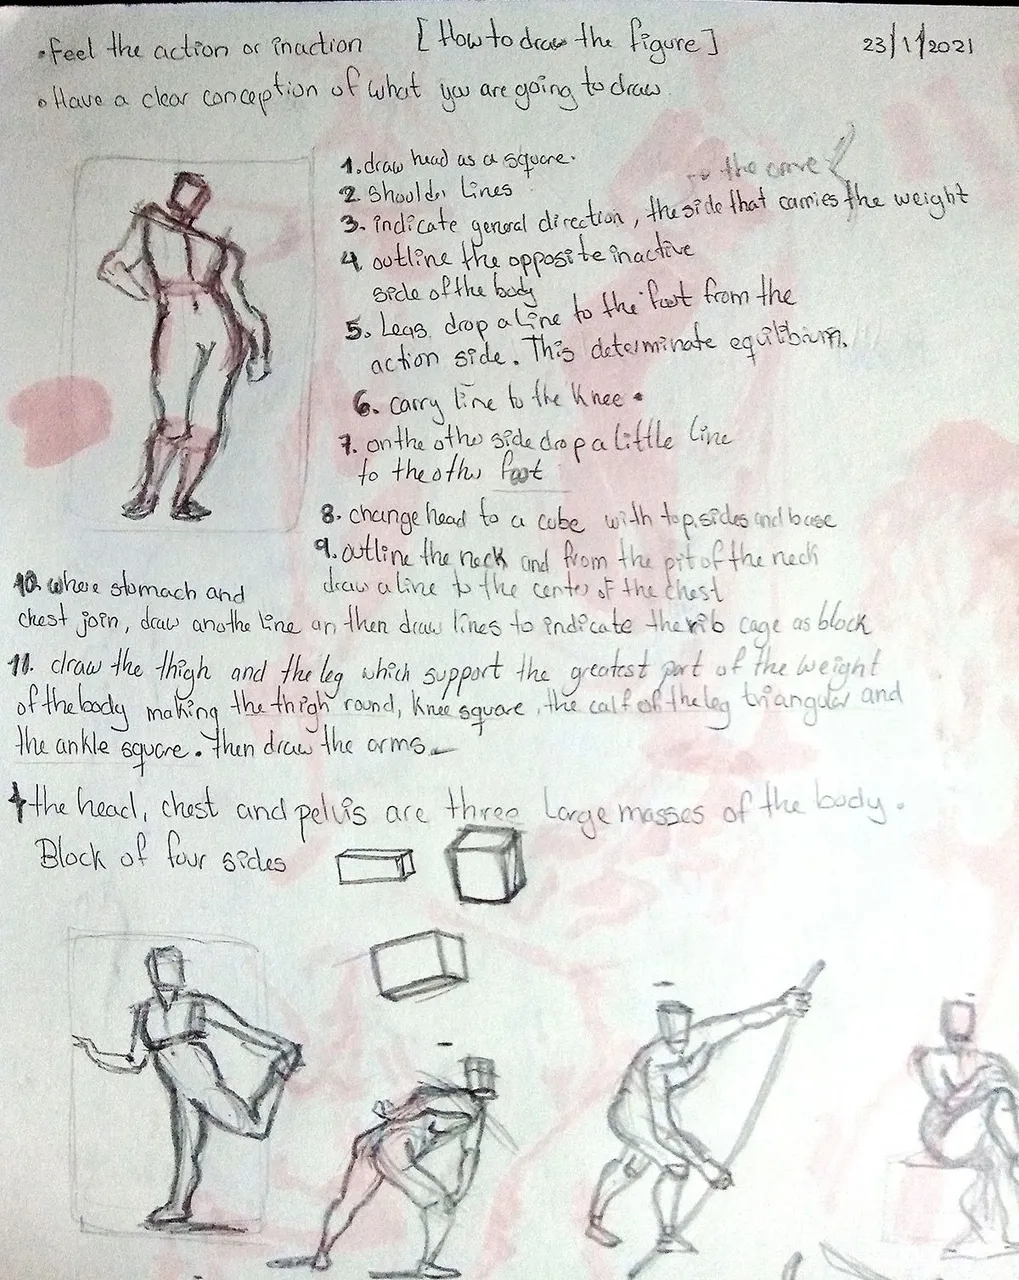 • Feel the action or inaction [How to draw the figure] 23/11/2021
• Have a clear conception of what you are going to draw.
1. draw head as a square.
2. Shoulder Lines
to the curve
3. indicate general direction, the side that carries the weight
4. outline the opposite inactive
side of the body
5. Legs drop a line to the foot from the
action side. This determinate equilibium.
6. carry line to the knee.
7. on the othe side drop a little line
to the othe foot
8. change head to a cube with top, sides and base
9. outline the neck and from the pit of the neck
draw a line to the cente of the chest
10. where stomach and
chest join, draw anothe line an then draw lines to indicate the rib cage as block
11. draw the thigh and the leg which support the greatest part of the weight
of the body making the thigh round, knee square, the calf of the leg triangular and
the ankle square. then draw the arms
the head, chest and pelvis are three large masses of the body.
Block of four sides